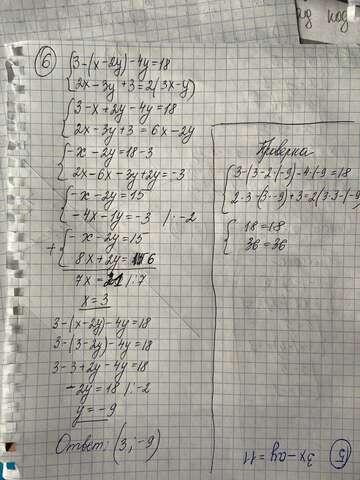 6
{3-(x-2y)-4y=18
{2x-3y+3=2(3x-y)
{3-x+2y-4y=18
{2x-3y+3=6x-2y
{-x-2y=18-3
{2x-6x-3y+2y=-3
{-x-2y=15
{-4x-1y=-3 /·-2
+{-x-2y=15
{8x+2y=6
7x=21 /:7
x=3
3-(x-2y)-4y=18
3-(3-2y)-4y=18
3-3+2y-4y=18
-2y=18 /:-2
y=-9
Ответ: (3; -9)
Проверка
{3-(3-2·(-9))-4·(-9)=18
{2·3-(3·-9)+3=2(3·3-(-9))
{18=18
{36=36
5
3x-ay=11